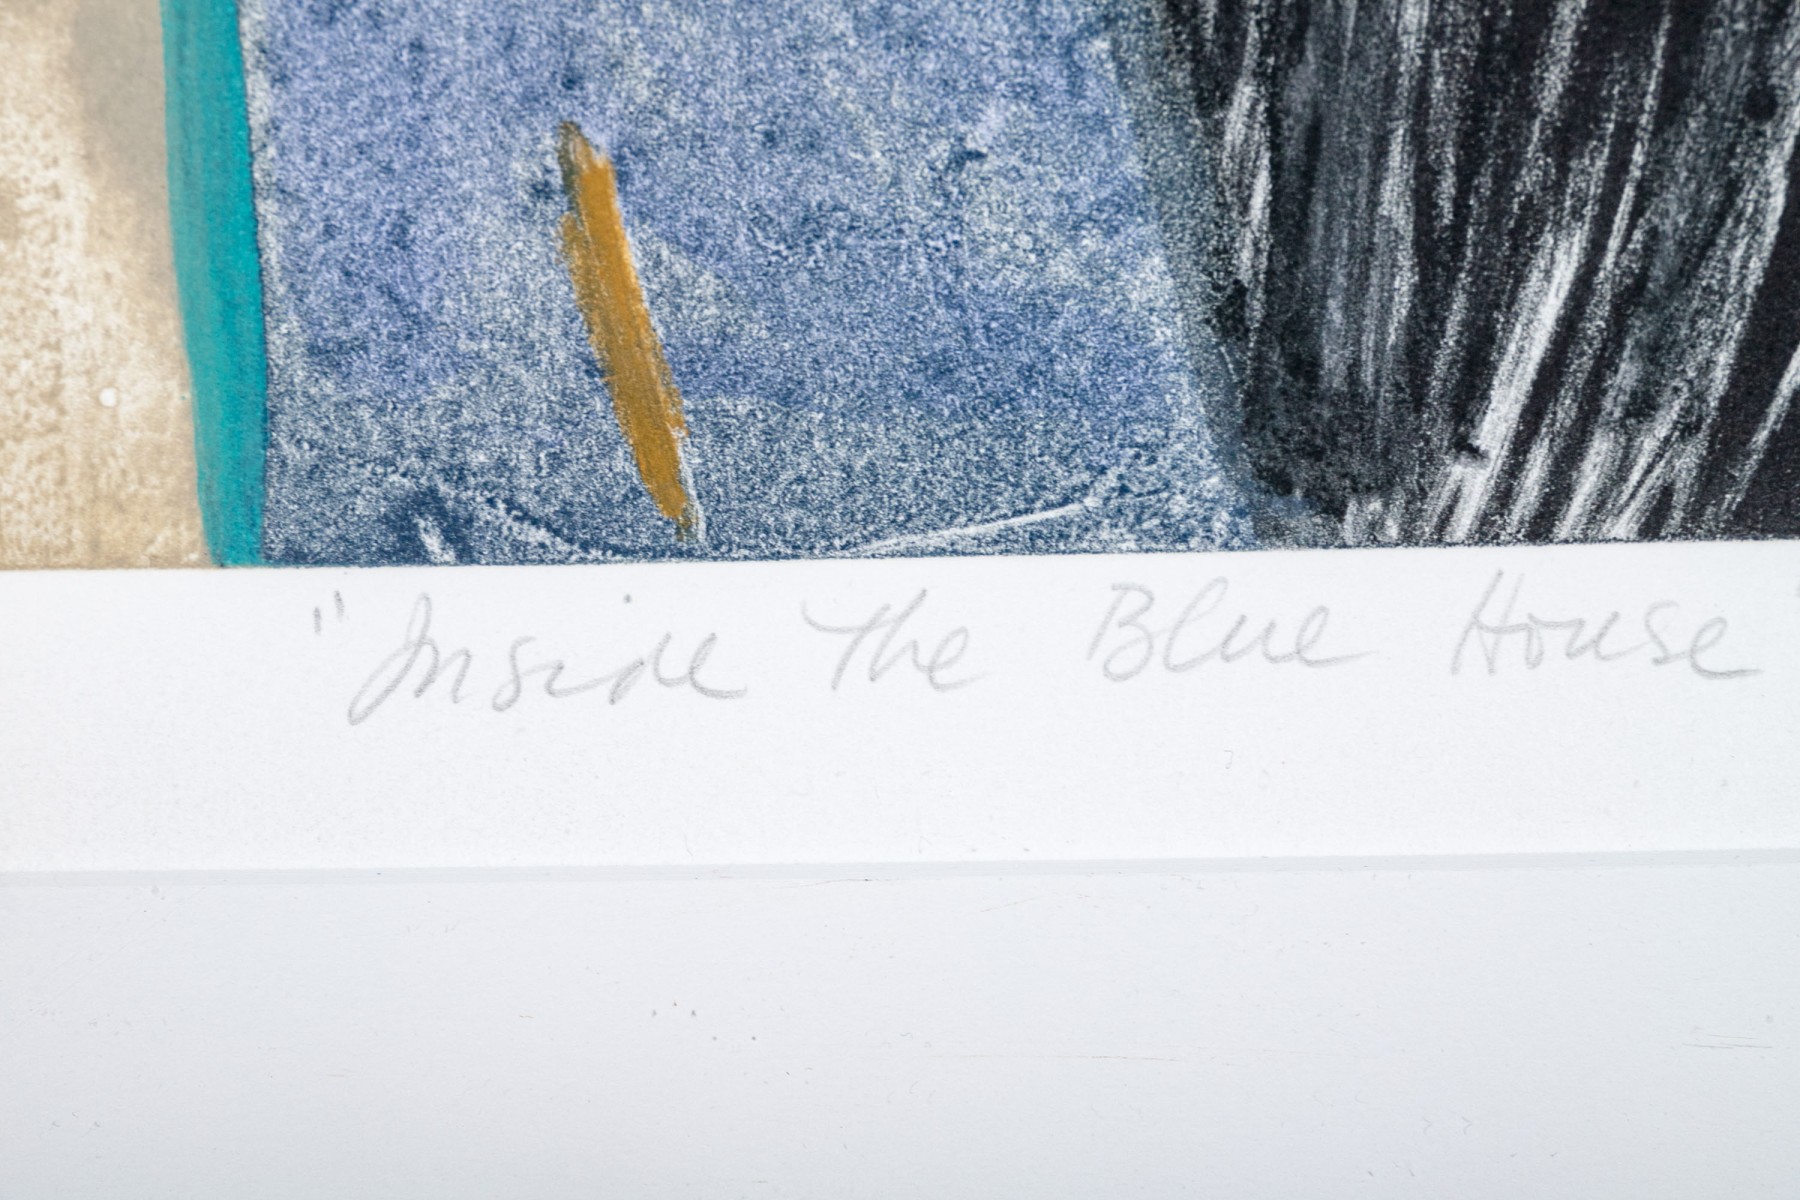 "Inside The Blue House"